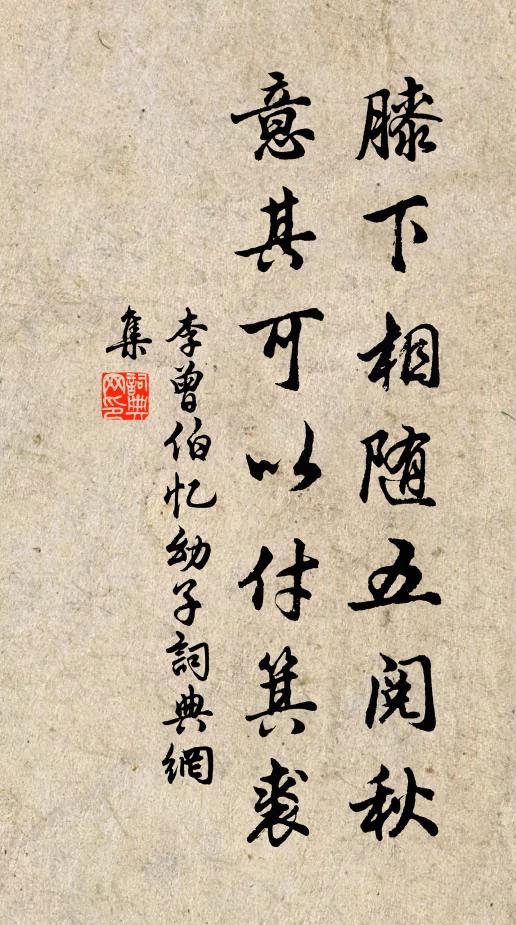 膝下相随五阅秋
意其可以付箕裘
李曾伯忆幼子詞典網
集
詞典
网印